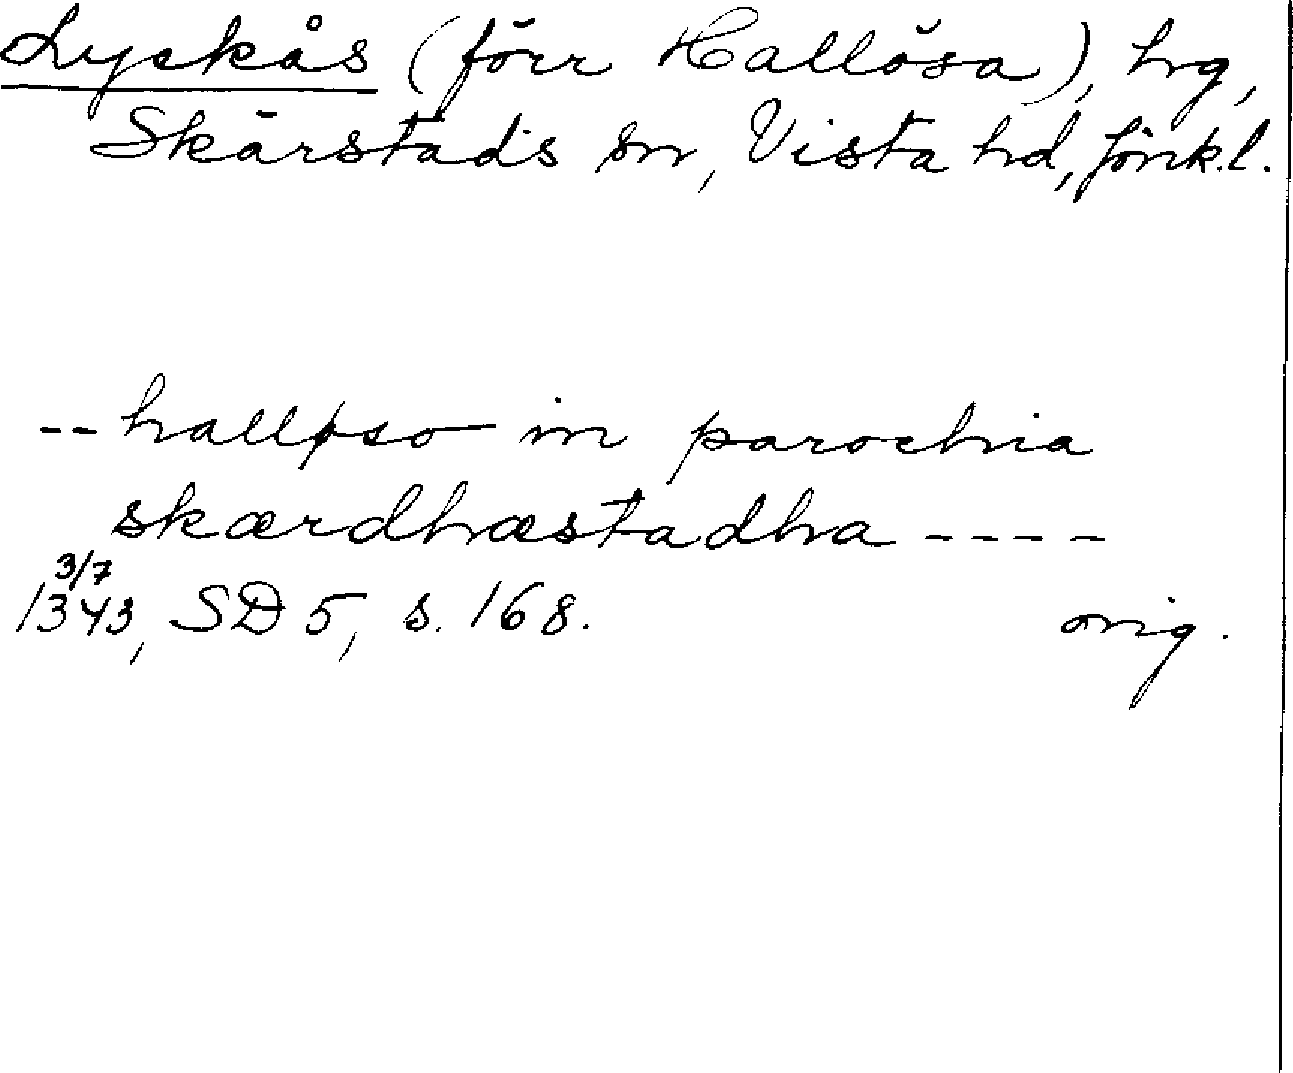 Lyckås (förr Hallösa), hrg,
Skärstads sn, Vista hd, Jönk.l.
-- halløso in parochia
skærdhæstadha ----
3/7
1343, SD 5, s. 168. orig.